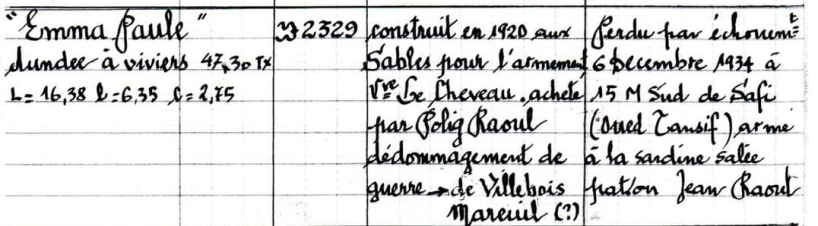 "Emma Paule"
dundee à viviers 47,30 Tx
L= 16,38 l=6,35 c=2,75
2329
construit en 1920 aux
Sables pour l'armement
Vve Le Cheveau, acheté
par Polig Raoul
dédommagement de
guerre → de Villebois
Mareuil (?)
Perdu par échouemt
6 Decembre 1934 à
15 M Sud de Safi
(Oued Tansif) arme
à la sardine salée
patron Jean Raoul